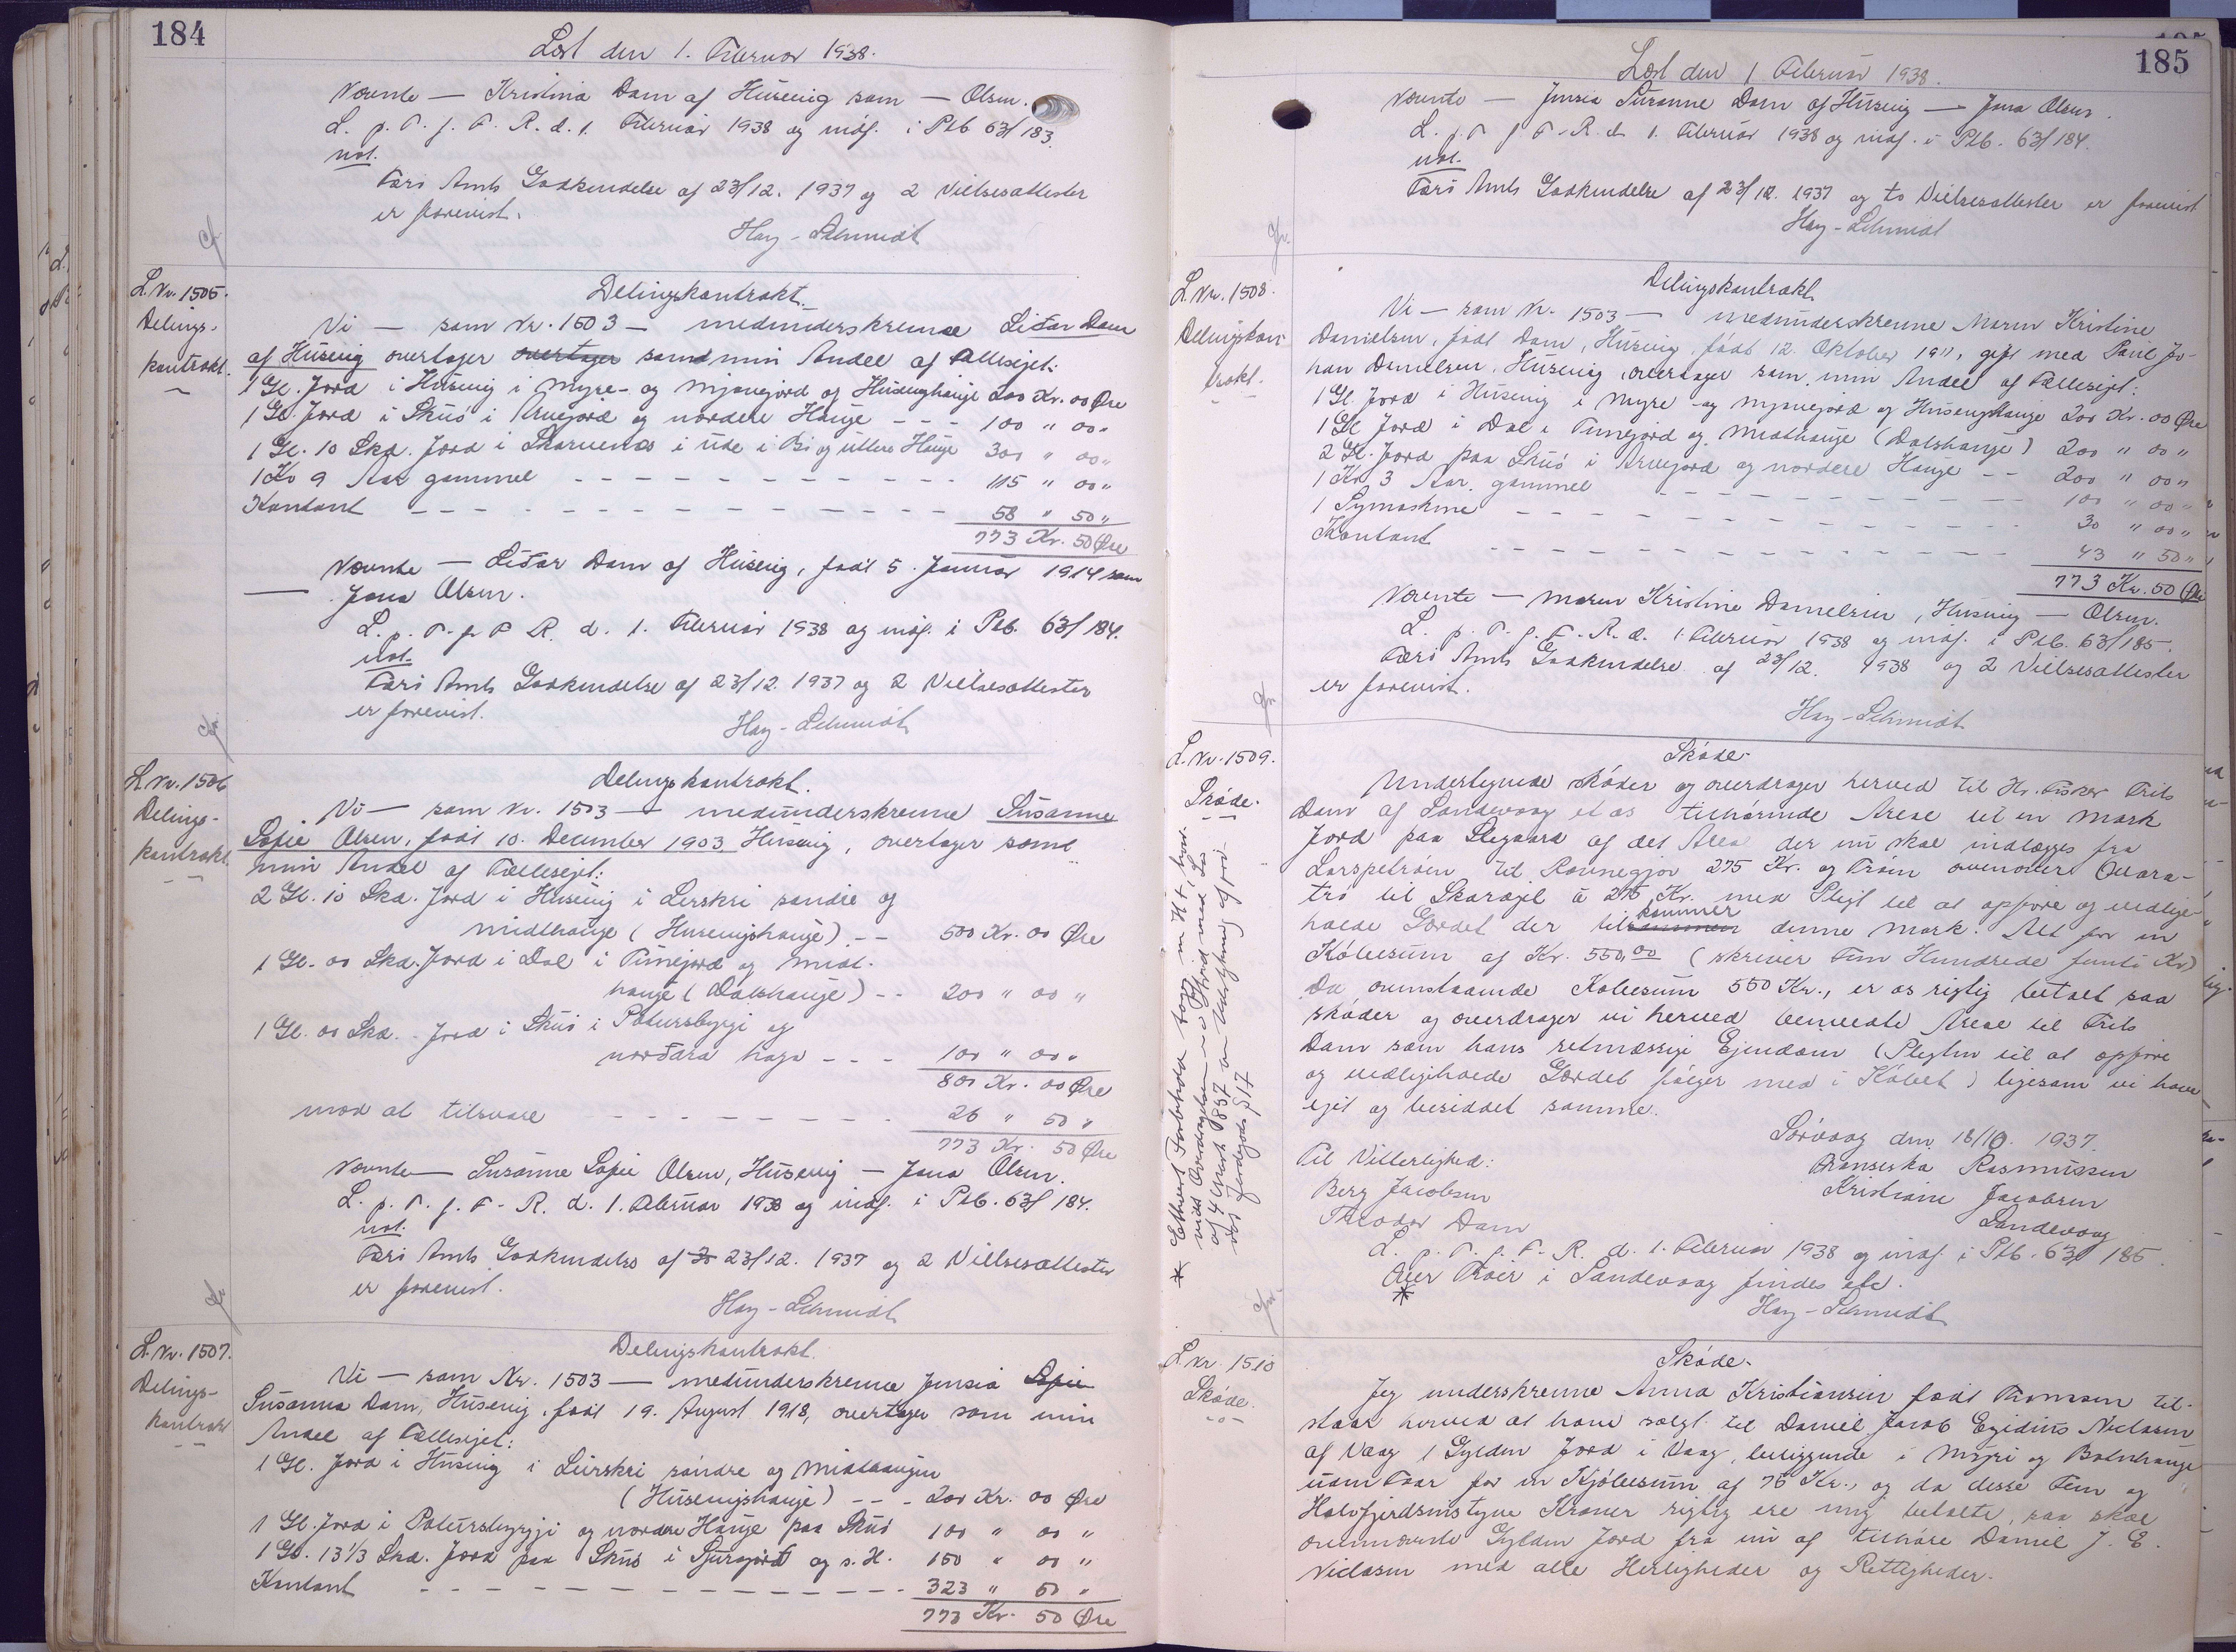 184
Læst den 1. Februar 1938.
Nævnte — Kristina Dam af Húsavig som — Olsen.
L. p. T. f. F. R. d. 1. Februar 1938 og indf. i Ptb 63/183.
not.
Færø Amts Godkendelse af 23/12. 1937 og 2 Vielsesattester
er forevist.
Hay-Schmidt
L. Nr. 1505.
Delings-
kontrakt.
Delingskontrakt.
Vi — som Nr. 1503 — medunderskrevne
af Húsavig overtager overtager som min Andel af Fællesejet:
1 Gl. Jord i Húsavig i Myre- og Mjønejord og Húsavighauge 200 Kr. 00 Øre
1 Gl. Jord i Skuó i Arnejord og nordere Hauge - - - 100 " 00 "
1 Gl. 10 Skd. Jord i i ude i Bi og uttere Hauge 300 " 00 "
1 Ko 9 Aar gammel - - - 115 " 00 "
Kontant - - - 58 " 50 "
773 Kr. 50 Øre
Nævnte — Dam af Húsavig, født 5. Januar 1914 som
— Jona Olsen.
L. p. T. f. F. R. d. 1. Februar 1938 og indf. i Ptb. 63/184.
not.
Færø Amts Godkendelse af 23/12. 1937 og 2 Vielsesattester
er forevist.
Hay-Schmidt
L. Nr. 1506
Delings-
kontrakt.
Delingskontrakt.
Vi — som Nr. 1503 — medunderskrevne Susanne
Sofie Olsen, født 10. December 1903, Húsavig, overtager som
min Andel af Fællesejet:
2 Gl. 10 Skd. Jord i Húsavig i Lerskri søndre og
midthauge (Husavigshauge) - - 500 Kr. 00 Øre
1 Gl. 00 Skd. Jord i Dal i Tunejord og Midt-
hauge (Dalshauge) - - 200 " 00 "
1 Gl. 00 Skd. Jord i Skuó i Petursbyrgi og
norðara haga - - - 100 " 00 "
800 Kr. 00 Øre
mod at tilsvare - - - 26 " 50 "
773 Kr. 50 Øre
Nævnte — Susanne Sofie Olsen, Húsavig — Jona Olsen.
L. p. T. f. F. R. d. 1. Februar 1938 og indf. i Ptb. 63/184.
not.
Færø Amts Godkendelse af 23/12. 1937 og 2 Vielsesattester
er forevist.
Hay-Schmidt
L. Nr. 1507.
Delings-
kontrakt
Delingskontrakt.
Vi — som Nr. 1503 — medunderskrevne Jensia Sofie
Susanna Dam, Húsavig, født 19. August 1918, overtager som min
Andel af Fællesejet:
1 Gl. Jord i Húsavig i Leirskri søndre og Midthaugen
(Húsavigshauge) - - - 200 Kr. 00 Øre
1 Gl. Jord i Petursbyrgi og nordre Hauge paa Skuó 100 " 00 "
1 Gl. 13 1/3 Skd. Jord paa Skuó i og s. H. 150 " 00 "
Kontant - - - 323 " 50 "
773 Kr. 50 Øre
185
Læst den 1 Februar 1938.
Nævnte — Jensia Susanne Dam af Húsavig — Jona Olsen.
L. p. T. f. F. R. d. 1. Februar 1938 og indf. i Ptb. 63/184.
not.
Færø Amts Godkendelse af 23/12. 1937 og to Vielsesattester er forevist
Hay-Schmidt
L. Nr. 1508.
Delingskon-
trakt.
Delingskontrakt
Vi — som Nr. 1503 — medunderskrevne Maren Kristine
Danielsen, født Dam, Húsavig, født 12. Oktober 1911, gift med Poul Jo-
han Danielsen, Húsavig, overtager som min Andel af Fællesejet:
1 Gl. Jord i Húsavig i Myre- og Mjønejord og Husavighauge 200 Kr. 00 Øre
1 Gl Jord i Dal i Tunejord og Midthauge (Dalshauge) 200 " 00 "
2 Gl. Jord paa Skuó i Arnejord og nordere Hauge - - 200 " 00 "
1 Ko 3 Aar gammel - - - 100 " 00 "
1 Symaskine - - - 30 " 00 "
Kontant - - - 43 " 50 "
773 Kr. 50 Øre
Nævnte — Maren Kristine Danielsen, Húsavig — Olsen.
L. p. T. f. F. R. d. 1. Februar 1938 og indf. i Ptb. 63/185.
Færø Amts Godkendelse af 23/12. 1938 og 2 Vielsesattester
er forevist.
Hay-Schmidt
L. Nr. 1509.
Skøde.
Skøde.
Undertegnede skøder og overdrager herved til Hr. Fisker Frits
Dam af Sandevaag et os tilhørende Areal til en Mark
Jord paa Slegaard af det Areal der nu skal indlægges fra
Larspetrøen til Rannegjov 275 Kr. og Trøen ovenover Quara-
trø til Skaræjl á 275 Kr. med Pligt til at opføre og vedlige-
holde Gærdet der tilkommer denne Mark. Alt for en
Købesum af Kr. 550,00 (skriver Fem Hundrede femti Kr)
Da ovenstaaende Købesum 550 Kr., er os rigtig betalt saa
skøder og overdrager vi herved bemeldte Areal til Frits
Dam som hans retmæssige Ejendom (Pligten til at opføre
og vedligeholde Gærdet følger med i Købet) ligesom vi have
ejet og besiddet samme.
Sørvaag den 18/10. 1937.
Til Vitterlighed:
Fransiska Rasmussen
Berg Jacobsen
Kristiane Jacobsen
Theodor Dam
Sandevaag
L. p. T. f. F. R. d. 1. Februar 1938 og indf. i Ptb. 63/185.
* Over Trøer i Sandevaag findes ele.
Hay-Schmidt
L Nr. 1510
Skøde.
Skøde.
Jeg underskrevne Anna Kristiansen født Thomsen til-
staar herved at have solgt til Daniel Jacob Egidius Niclasen
af Vaag 1 Gylden Jord i Vaag, beliggende i Mýri og Botnhauge
uden Faar for en Kjøbesum af 75 Kr., og da disse Fem og
Halvfjerdsindstyve Kroner rigtig ere mig betalte, saa skal
ovennævnte Gylden Jord fra nu af tilhøre Daniel J. E.
Niclasen med alle Herligheder og Rettigheder.